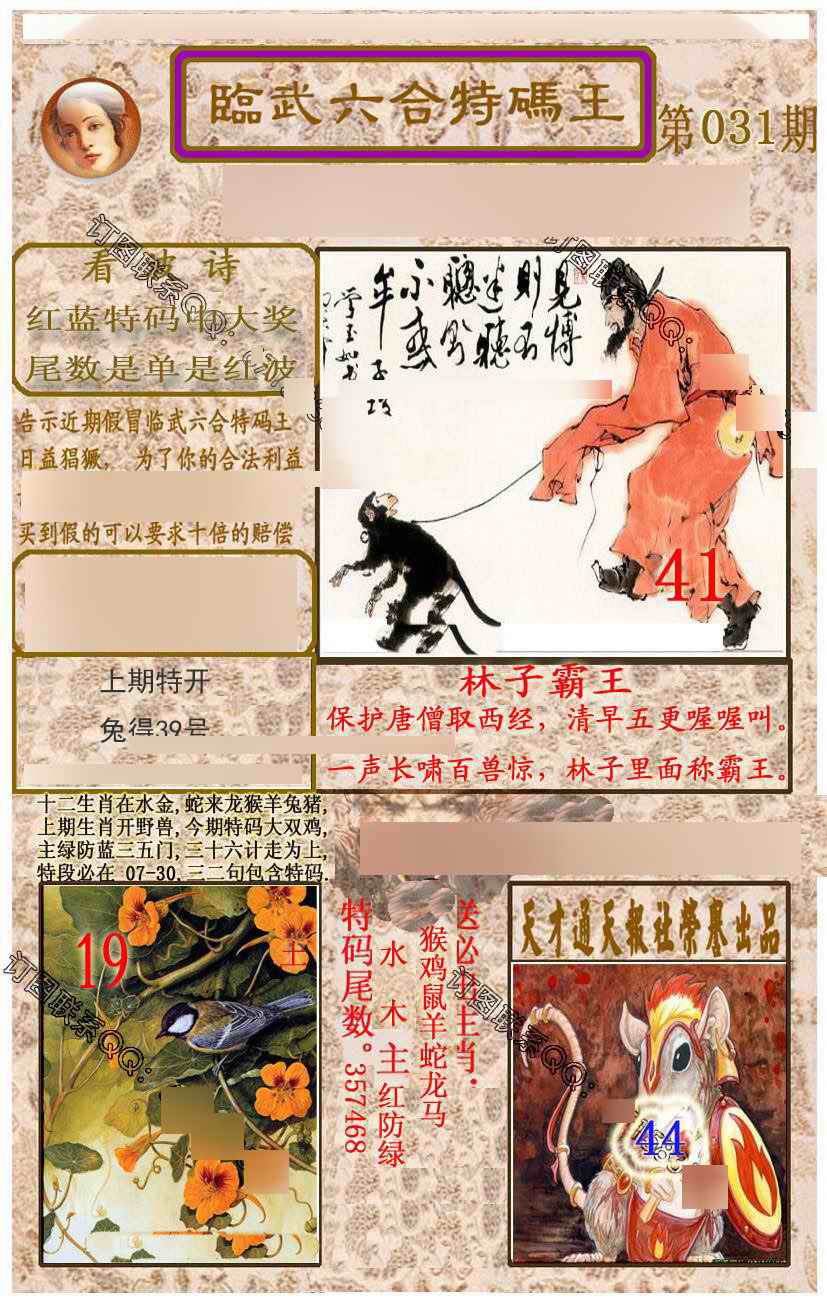 臨武六合特碼王
第031期
看波诗
红蓝特码中大奖
尾数是单是红波
告示近期假冒临武六合特码王
日益猖獗， 为了你的合法利益
买到假的可以要求十倍的赔偿
上期特开
兔得39号
见博
则不
迷聽
聰
不惑
牟子
41
林子霸王
保护唐僧取西经，清早五更喔喔叫。
一声长啸百兽惊，林子里面称霸王。
十二生肖在水金,蛇来龙猴羊兔猪,
上期生肖开野兽,今期特码大双鸡,
主绿防蓝三五门,三十六计走为上,
特段必在 07-30.三二句包含特码.
19
土
猴鸡鼠羊蛇龙马
水木主红防绿
特码尾数。357468
天才通天报社荣誉出品
44
订图联系QQ:
订图联系QQ:
订图联系QQ:
订图联系QQ: